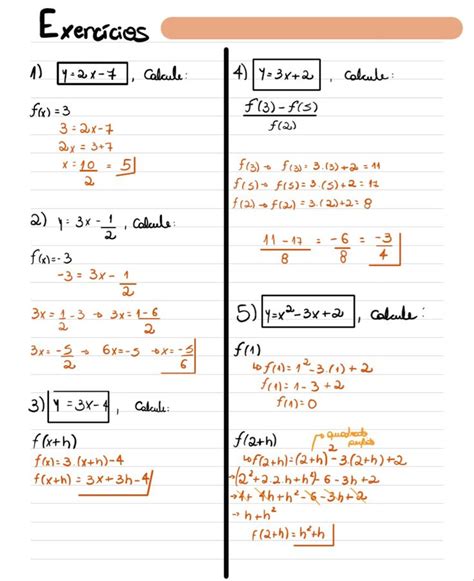 Exercícios
1) y=2x-7, Calcule:
f(x)=3
3=2x-7
2x=3+7
x=10/2=5
2) y=3x-1/2, Calcule:
f(x)=-3
-3=3x-1/2
3x=1/2-3 → 3x=1-6/2
3x=-5/2 → 6x=-5 → x=-5/6
3) y=3x-4, Calcule:
f(x+h)
f(x)=3.(x+h)-4
f(x+h)=3x+3h-4
4) y=3x+2, Calcule:
f(3)-f(5)/f(2)
f(3)→ f(3)=3.(3)+2=11
f(5)→ f(5)=3.(5)+2=17
f(2)→ f(2)=3.(2)+2=8
11-17/8=-6/8=-3/4
5) y=x²-3x+2, Calcule:
f(1)
↳f(1)=1²-3.(1)+2
f(1)=1-3+2
f(1)=0
f(2+h) → quadrado
↳f(2+h)=(2+h)²-3.(2+h)+2
→(2²+2.2.h+h²)-6-3h+2
→4+4h+h²-6-3h+2
→h+h²
f(2+h)=h²+h